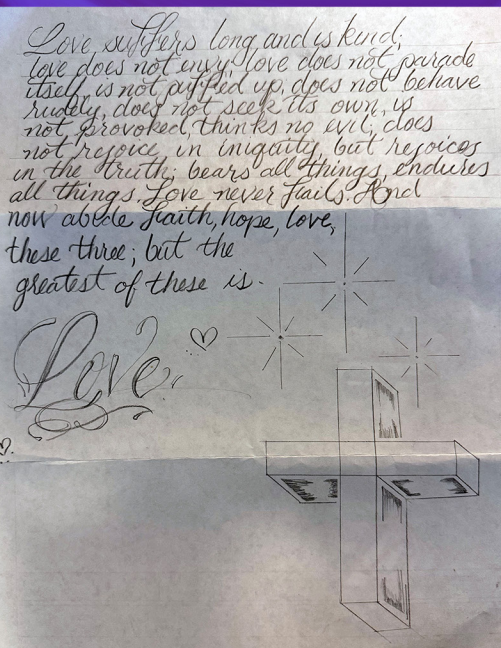 Love, suffers long and is kind;
love does not envy, love does not parade
itself, is not puffed up, does not behave
rudely, does not seek its own, is
not provoked, thinks no evil; does
not rejoice in iniquity, but rejoices
in the truth; bears all things, endures
all things. Love never fails. And
now abide faith, hope, love,
these three; but the
greatest of these is.
Love.